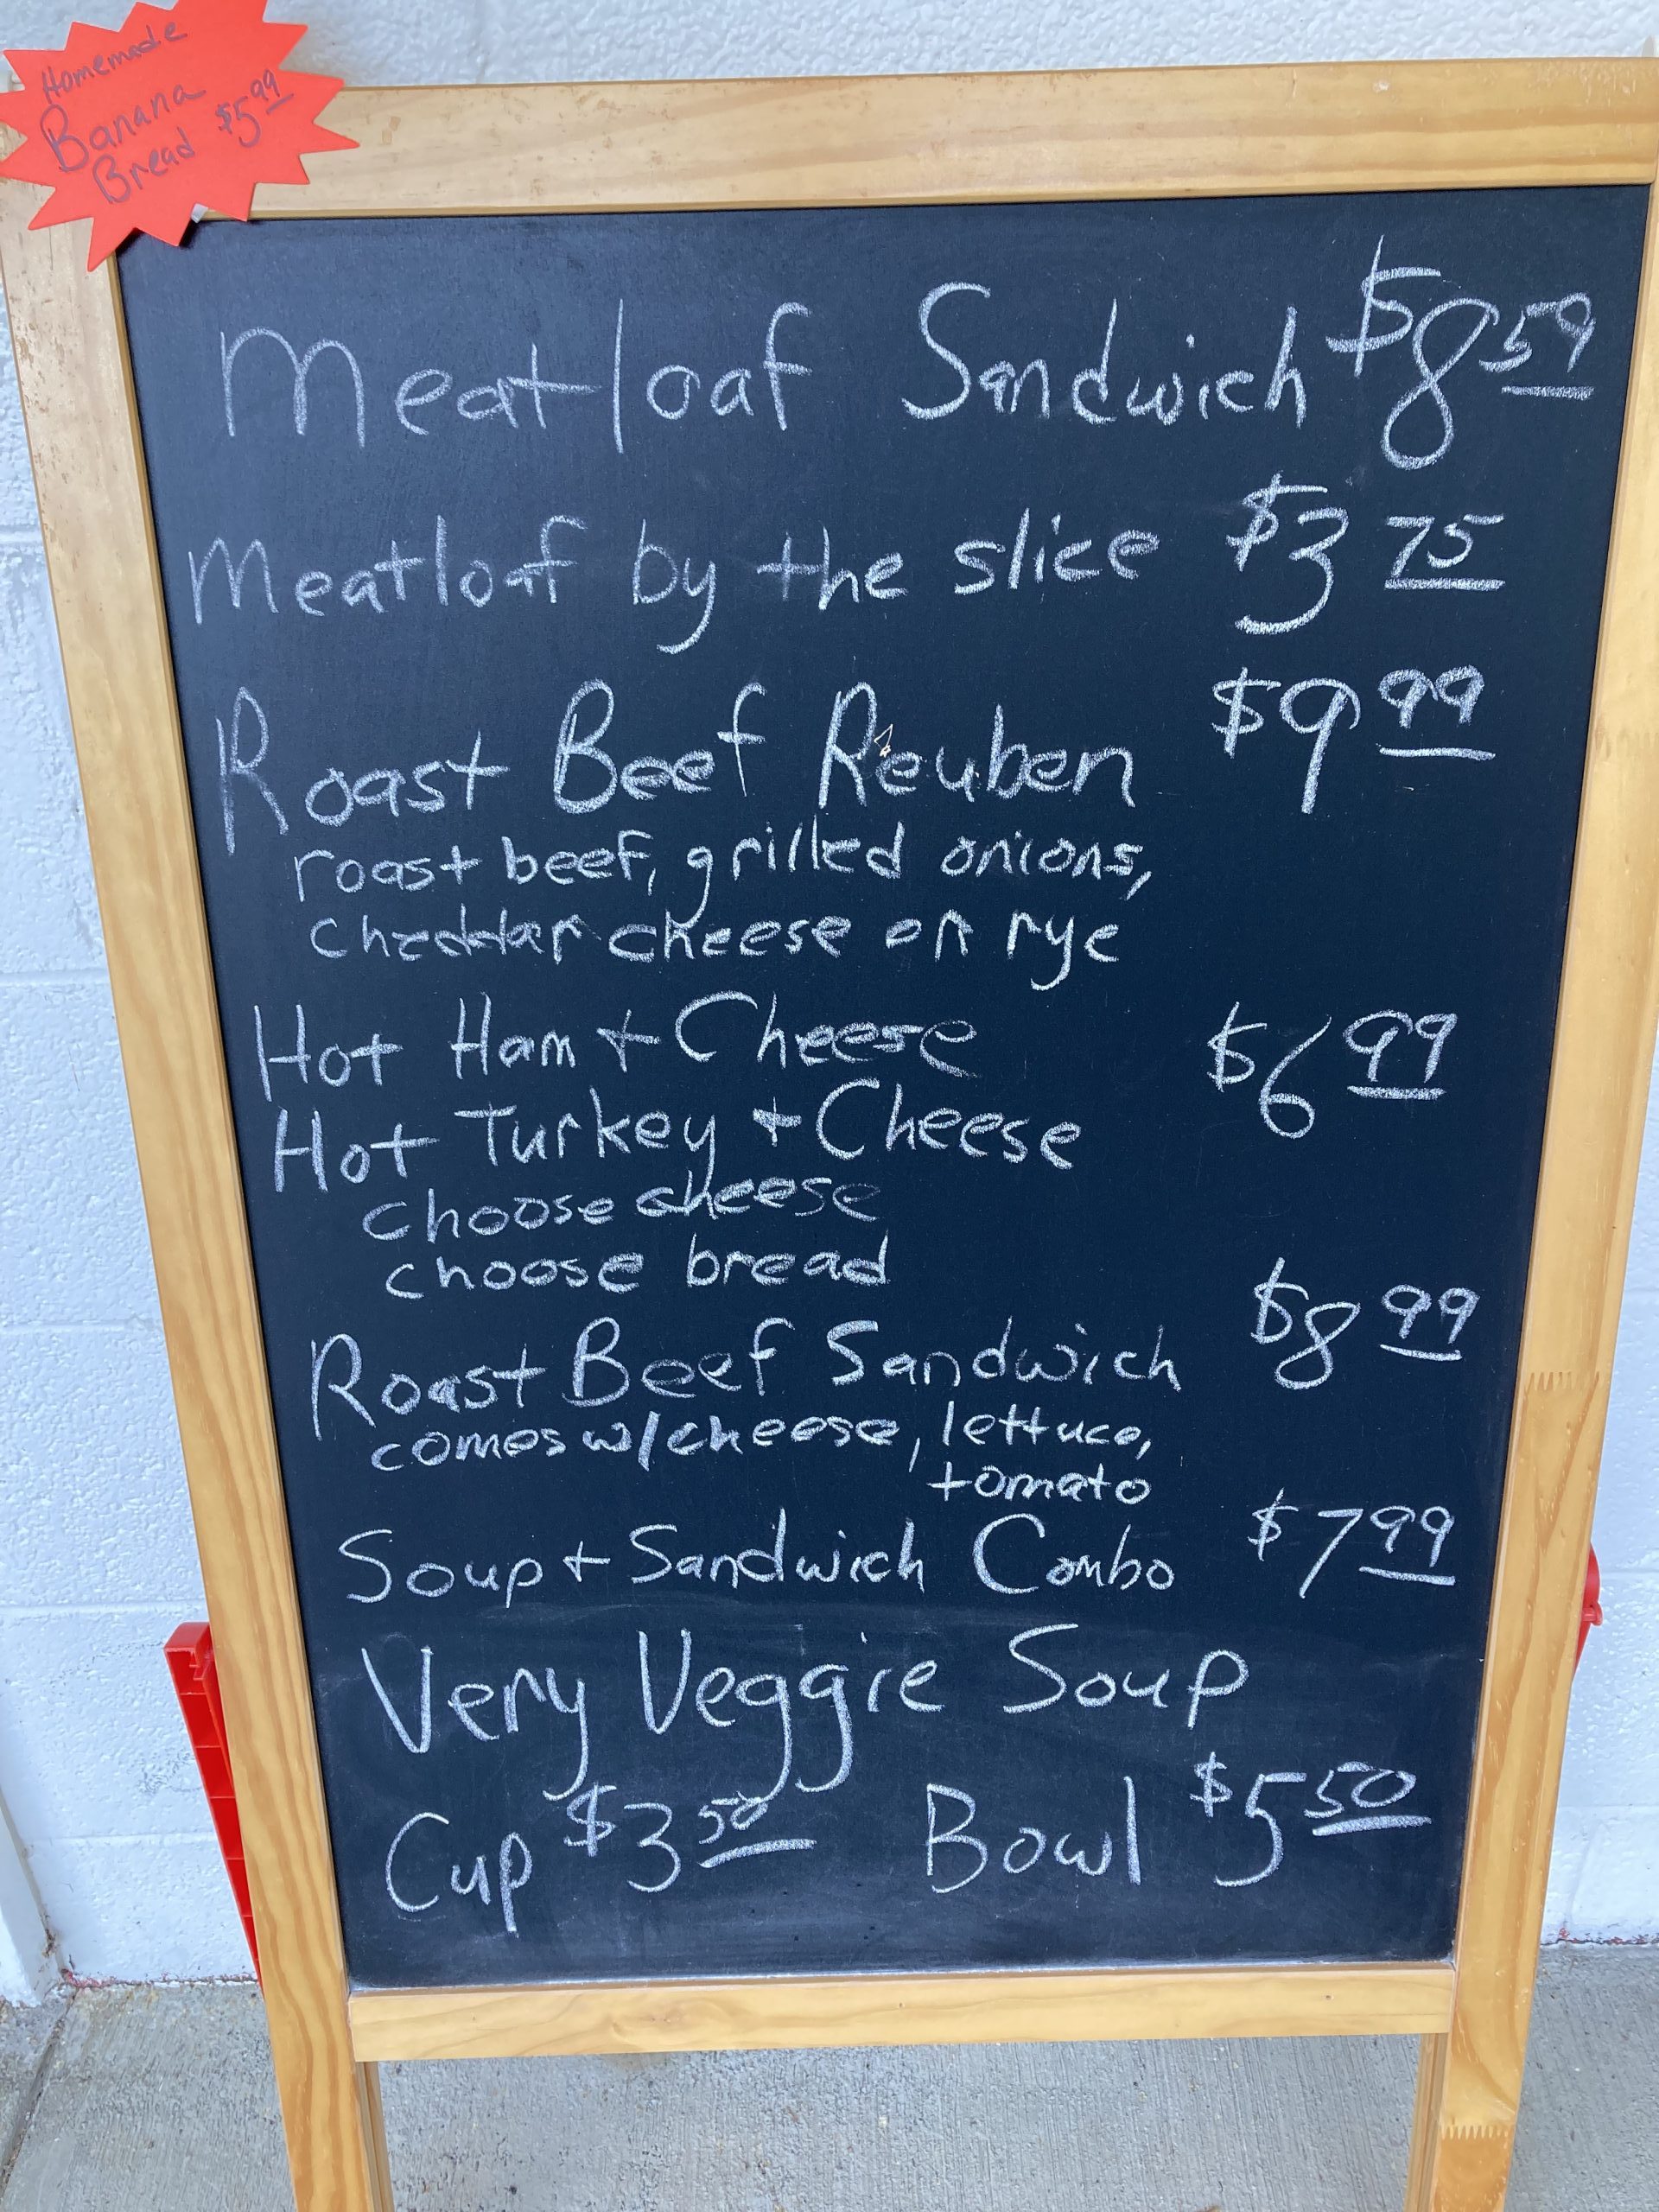 Homemade
Banana
Bread $5.99
Meatloaf Sandwich $8.59
Meatloaf by the slice $3.75
Roast Beef Reuben $9.99
roast beef, grilled onions,
cheddar cheese on rye
Hot Ham + Cheese $6.99
Hot Turkey + Cheese
choose cheese
choose bread
Roast Beef Sandwich $8.99
comes w/cheese, lettuce,
tomato
Soup + Sandwich Combo $7.99
Very Veggie Soup
Cup $3.50 Bowl $5.50